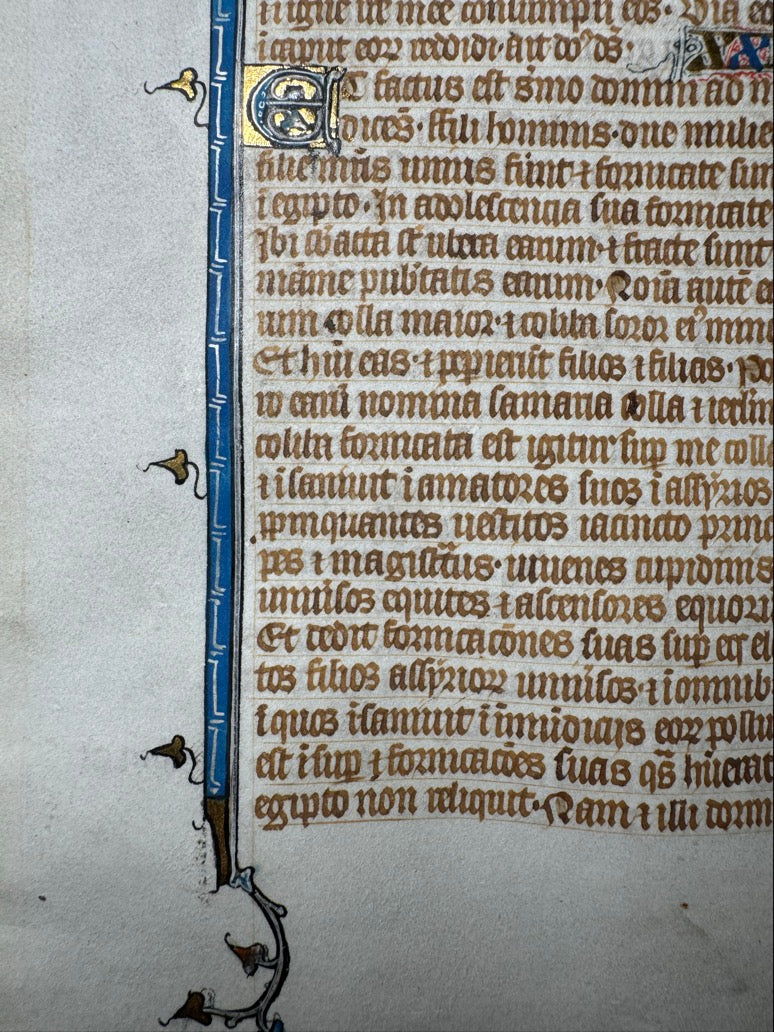 i igne ire mee consumpsi eos. Viā eo
i caput eoꝝ reddidi. ait dn̄s ds̄.
Et factus est s̄mo domini ad m
dicēs. ffili hominis. due mulie
filie mr̄is unius fūnt ⁊ fornicate sun
i egipto. In adolescencia sua fornicate
Ibi sb̄acta s̄t ubera earum. ⁊ fracte sunt
māme pub̄tatis earum. Noīa autē ea
rum oolla maior. ⁊ ooliba soror eiꝰ mino
Et hūi eas. ⁊ pepierūt filios ⁊ filias. Po
ro earū nomina samaria oolla ⁊ ierlm
ooliba fornicata est igitur sup me oolla
⁊ isaniuit i amatores suos i assyrios
ꝓpinquantes uestitos iacincto princi
pes ⁊ magistrūs. iuuenes cupidinis
uniūsos equites ⁊ ascensores equoru
Et dedit fornicacōnes suas sup eos el
tos filios assyrioꝝ uniūsos. ⁊ i omnib
i quos isaniuit i īmūdiciis eoꝝ pollu
est isup ⁊ fornicacōes suas qs̄ hūerat
egipto non reliquit. Nam ⁊ illi dorm